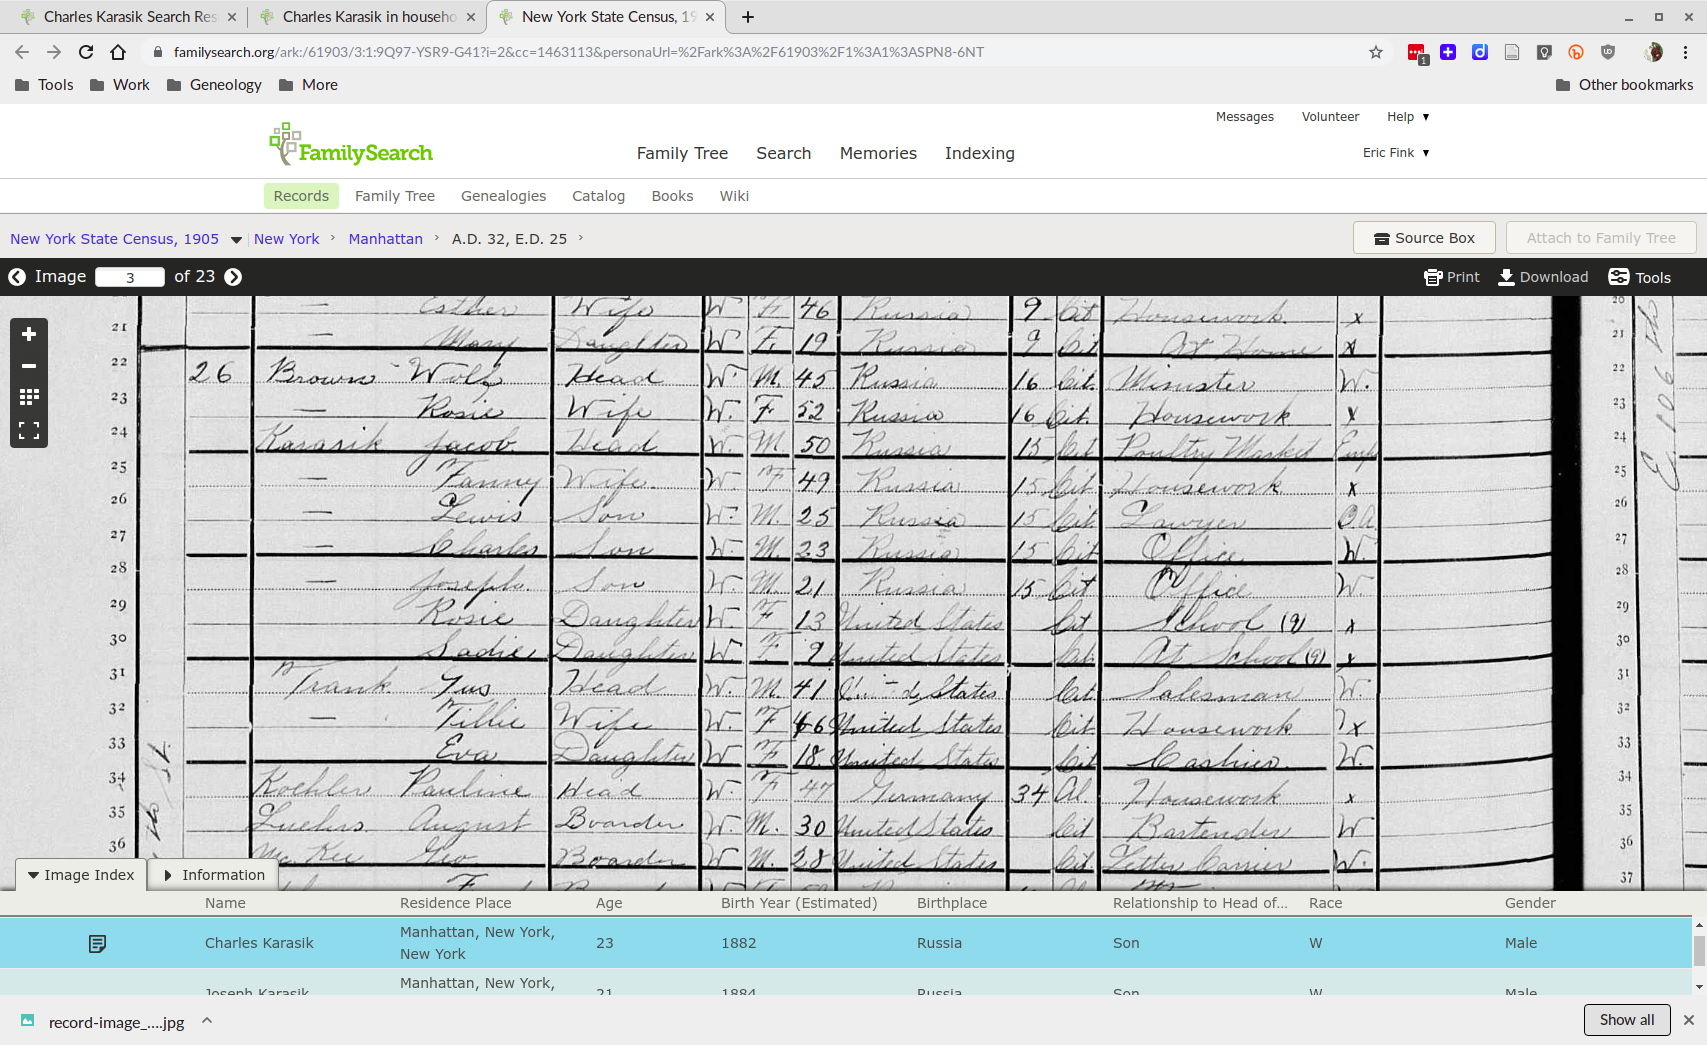 Charles Karasik Search Res
Charles Karasik in househo
New York State Census, 19
familysearch.org/ark:/61903/3:1:9Q97-YSR9-G41?i=2&cc=1463113&personaUrl=%2Fark%3A%2F61903%2F1%3A1%3ASPN8-6NT
1
Tools Work Geneology More Other bookmarks
Messages Volunteer Help
FamilySearch Family Tree Search Memories Indexing Eric Fink
Records Family Tree Genealogies Catalog Books Wiki
New York State Census, 1905 New York Manhattan A.D. 32, E.D. 25 Source Box Attach to Family Tree
Image 3 of 23 Print Download Tools
— Esther Wife W F. 46 Russia 9 Cit Housework x 20
21 — Mary Daughter W F. 19 Russia 9 Cit At Home x 21
22 26 Brown Wolf Head W. M. 45 Russia 16 Cit. Minister W. 22
23 — Rosie Wife W. F. 52 Russia 16 Cit. Housework x 23
24 Karasik Jacob. Head W. M. 50 Russia 15 Cit Poultry Market 24
25 — Fanny Wife. W F 49 Russia 15 Cit Housework x 25
26 — Lewis Son W. M. 25 Russia 15 Cit. Lawyer O.A. 26
27 — Charles Son W. M. 23 Russia 15 Cit Office W. 27
28 — Joseph. Son W. M. 21 Russia 15 Cit Office W. 28
29 Rosie Daughter W. F 13 United States Cit School (9) x 29
30 Sadie Daughter W. F. 9 United States Cit. At School (9) x 30
31 Frank Gus Head W. M. 41 States Cit. Salesman W. 31
32 — Tillie Wife W. F 46 United States Cit. Housework x 32
33 Eva Daughter W. F 18. United States Cit Cashier. W. 33
34 Koehler Pauline Head W. F 47 Germany 34 Al. Housework x 34
35 August Boarder W. M. 30 United States Cit Bartender W 35
36 McKee Geo. Boarder W M. 28 United States Cit. Letter Carrier W. 36
37
Image Index Information
Name Residence Place Age Birth Year (Estimated) Birthplace Relationship to Head of... Race Gender
Charles Karasik Manhattan, New York, New York 23 1882 Russia Son W Male
Joseph Karasik Manhattan, New York, 21 1884 Russia Son W Male
record-image_....jpg Show all